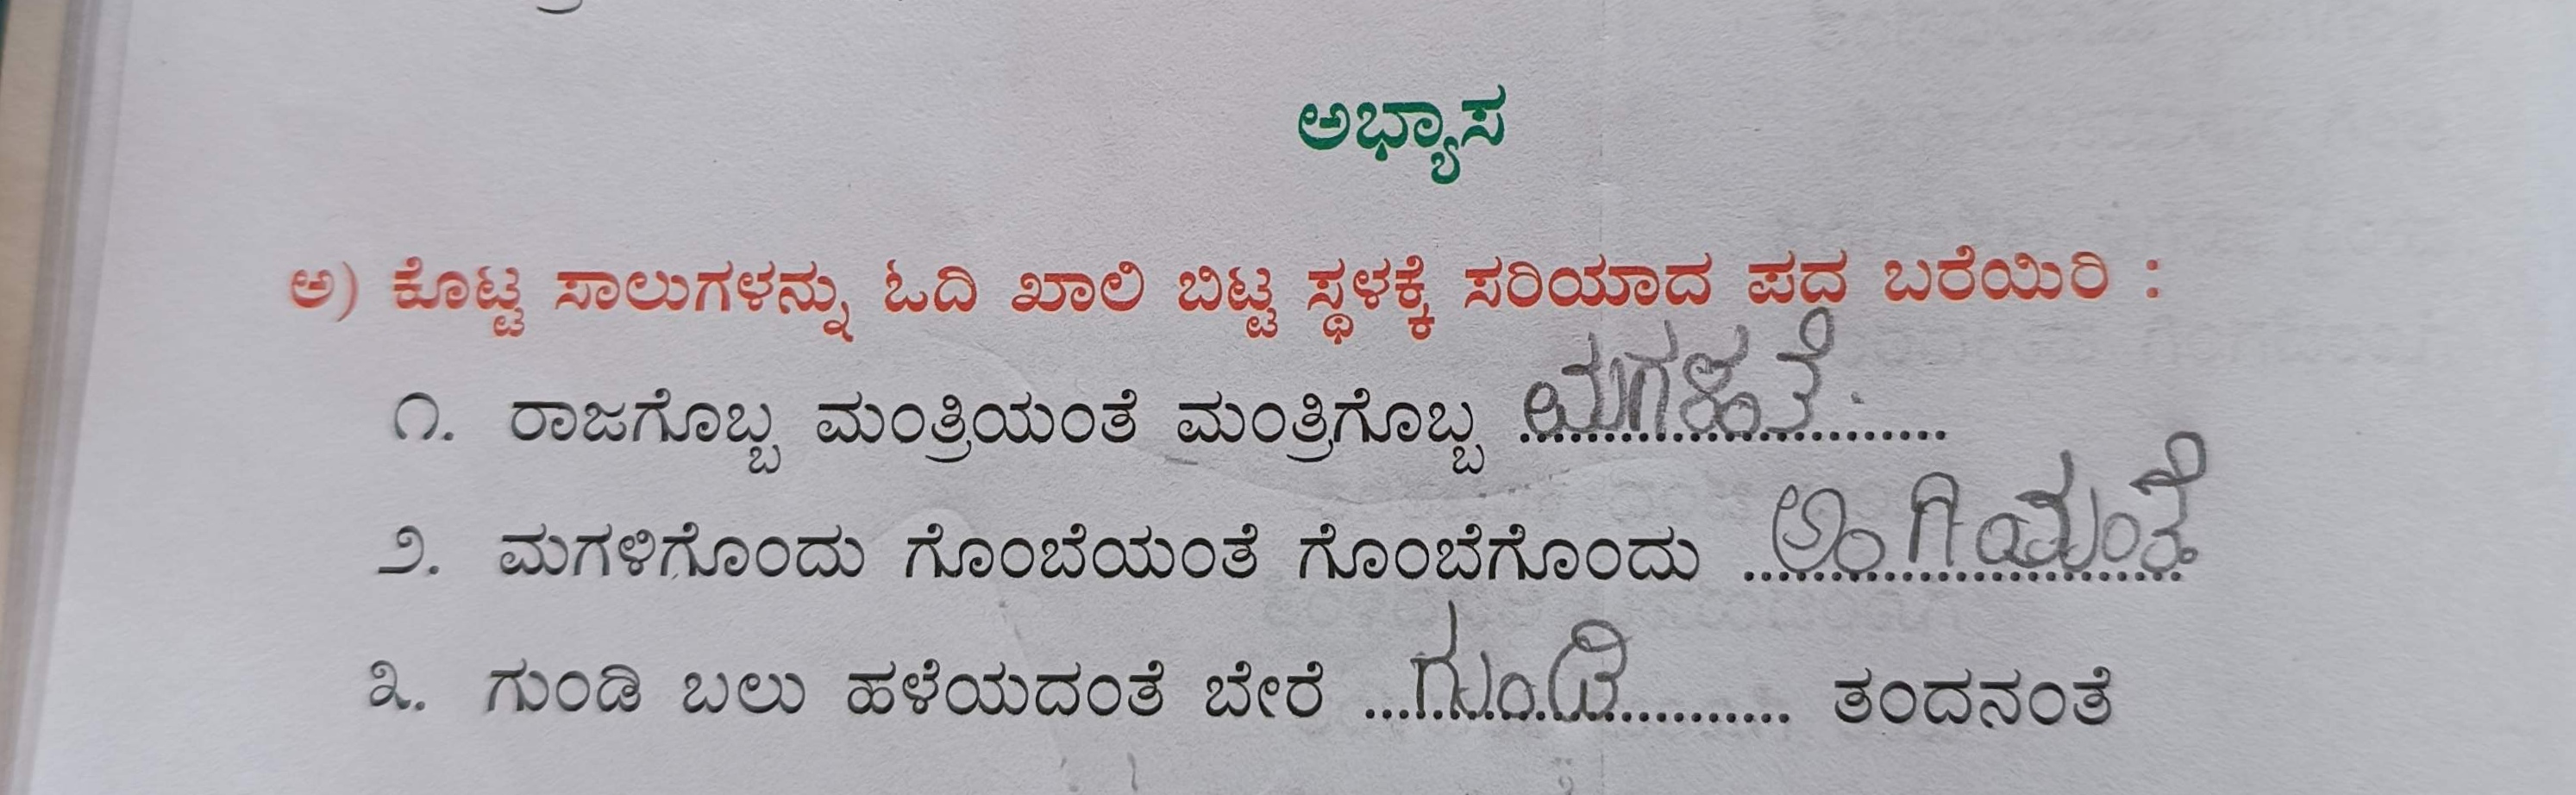 ಅಭ್ಯಾಸ
ಅ) ಕೊಟ್ಟ ಸಾಲುಗಳನ್ನು ಓದಿ ಖಾಲಿ ಬಿಟ್ಟ ಸ್ಥಳಕ್ಕೆ ಸರಿಯಾದ ಪದ ಬರೆಯಿರಿ :
೧. ರಾಜಗೊಬ್ಬ ಮಂತ್ರಿಯಂತೆ ಮಂತ್ರಿಗೊಬ್ಬ
೨. ಮಗಳಿಗೊಂದು ಗೊಂಬೆಯಂತೆ ಗೊಂಬೆಗೊಂದು ಅಂಗಿಯಂತೆ
೩. ಗುಂಡಿ ಬಲು ಹಳೆಯದಂತೆ ಬೇರೆ ಗುಂಡಿ ತಂದನಂತೆ